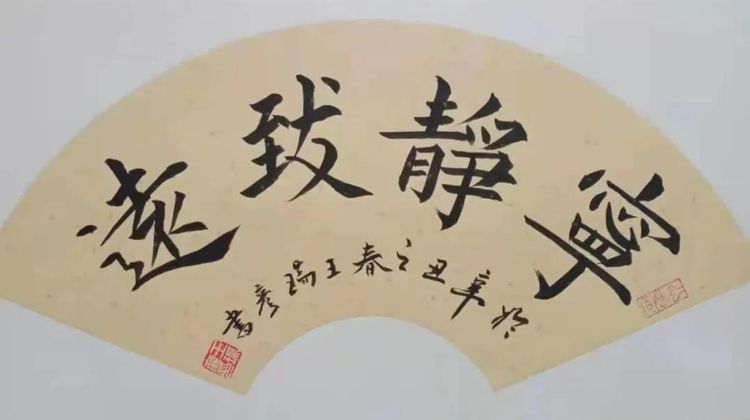 寧靜致遠
辛丑之春王瑞彦書